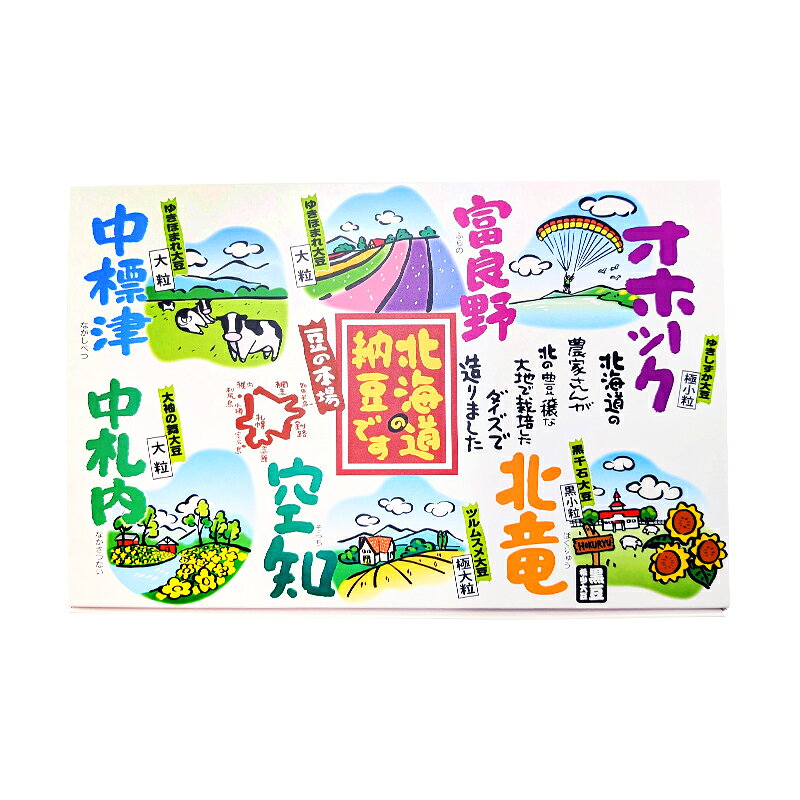 オホーツク
ゆきしずか大豆
極小粒
富良野
ふらの
ゆきほまれ大豆
大粒
中標津
なかしべつ
ゆきほまれ大豆
大粒
北海道の
農家さんが
北の豊穣な
大地で栽培した
ダイズで
造りました
北海道の
納豆です
豆の本場
稚内
利尻島
小樽
札幌
網走
釧路
北竜
ほくりゅう
黒千石大豆
黒小粒
HOKURYU
黒豆
空知
そらち
ツルムスメ大豆
極大粒
中札内
なかさつない
大袖の舞大豆
大粒